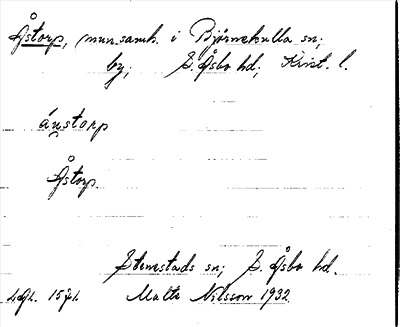 Åstorp, mun.samh. i Björnekulla sn;
by; S. Åsbo hd; Krist. l.
åustorp
Åstorp
Stenestads sn; S. Åsbo hd.
Malte Nilsson 1932